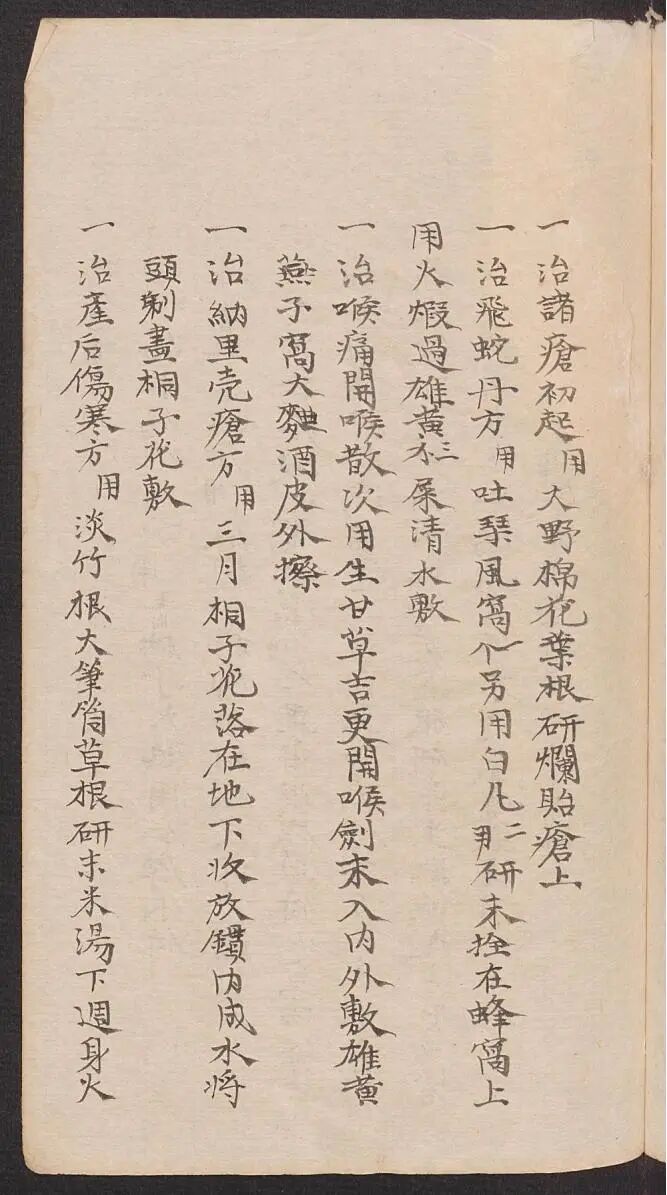 一治諸瘡初起用大野棉花葉根研爛貼瘡上
一治飛蛇丹方用吐琹風窩一个另用白凡二研末拴在蜂窩上
用火煆過雄黃三屎清水敷
一治喉痛開喉散次用生甘草吉更開喉劍末入內外敷雄黃
燕子窩大麯酒皮外擦
一治納里壳瘡方用三月桐子花落在地下收放鑵內成水將
頭剃盡桐子花敷
一治產后傷寒方用淡竹根大筆筒草根研末米湯下週身火